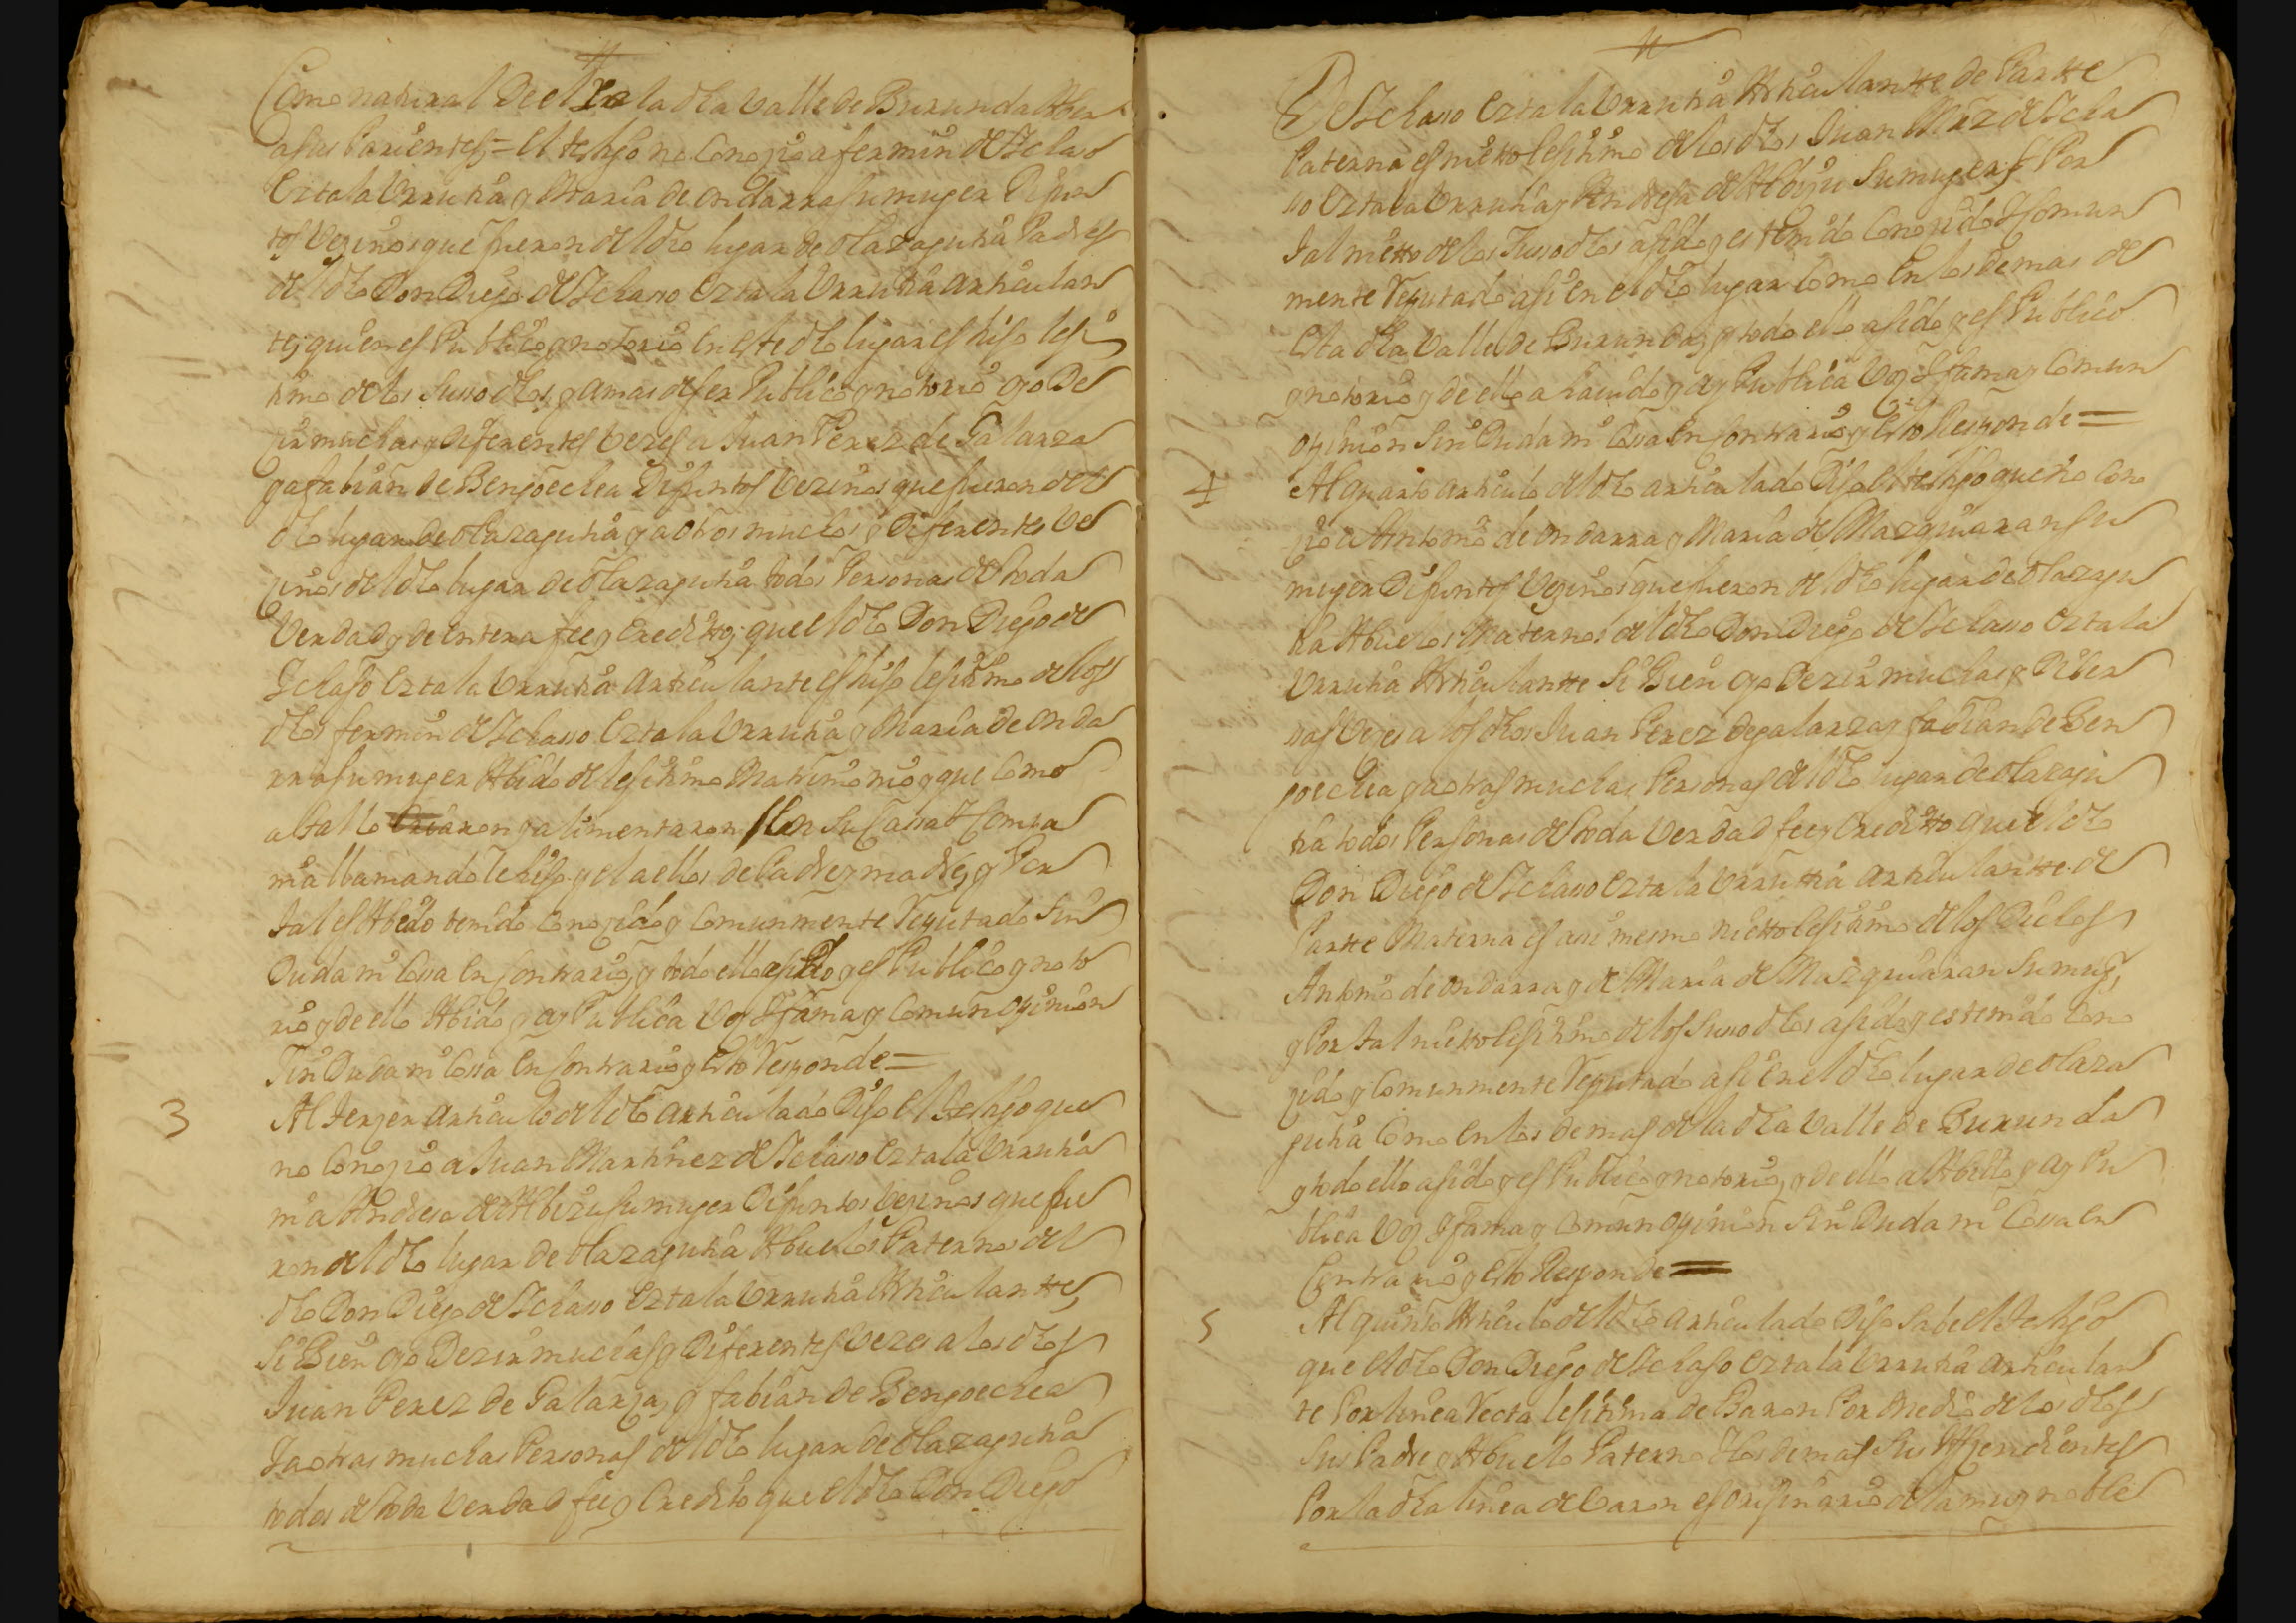 Como natural De el Ira la dha Valle de Burunda Aber
asus Parientes = el testigo no Conoçio a fermin de Ychaso
Eztala Urrutia y Maria de ondarra su muger Difun
tos Vezinos que fueron del dho lugar de olazagutia Padres
del dho Don Diego de Ychasso Eztala Urrutia articulan
te; quien es Publico y notorio en este dho lugar es hijo lesi
timo de los Susodhos, y amas de ser Publico y notorio oyo De
çir muchas y Diferentes Vezes a Juan Perez de Galarza
y a fabian de Bengoechea Difuntos Vezinos que fueron del
dho lugar de olazagutia y a otros muchos y Diferentes Ve
çinos del dho lugar de olazagutia todos Personas de toda
Verdad y de entera fee y Credito, que el dho Don Diego de
Ychaso Eztala Urrutia articulante es hijo lesitimo de los
dhos fermin de Ychasso Eztala Urrutia y Maria de onda
rra su muger Abido de lesitimo Matrimonio y que Como
a tal lo Criaron y alimentaron En Su Cassa Y Compa
nia llamandole hijo y el a ellos de Padre y madre, y Por
Tal es Abido tenido Conoçido y Comunmente Reputado Sin
Duda ni Cossa En Contrario, y todo ello asido y es Publico y noto
rio y de ello Abido y ay Publica Voz Y fama y Comun opinion
Sin Duda ni Cossa En Contrario y esto Responde =
3 Al Terçer articulo del dho articulado Dijo el testigo que
no Conoçio a Juan Martinez de Ychasso Eztala Urrutia
ni a Andresa de Albizu su muger Difuntos Vezinos que fue
ron del dho lugar de olazagutia Abuelos Paternos del
dho Don Diego de Ychasso Eztala Urrutia Articulantte,
Si Bien oyo Dezir muchas y Diferentes Vezes a los dhos
Juan Perez de Galarza, y fabian de Bengoechea
Y a otras muchas Personas del dho lugar de olazagutia
todos de toda Verdad fee y Credito que el dho Don Diego
De Ychasso Eztala Urrutia Articulantte de Partte
Paterna es nietto lesitimo de los dhos Juan Mrz de Ycha
so Eztala Urrutia y Andresa de Albizu Su muger y Por
Tal nietto de los Susodhos asido y es tenido Conozido Y Comun
mente Reputado asi En el dho lugar Como En los demas de
Esta dha Valle de Burunda, y todo ello asido y es Publico
y notorio y de ello a hauido y ay Publica Voz Y fama y Comun
opinion Sin Duda ni Cossa En Contrario, y Esto Responde =
4 Al quarto articulo del dho articulado Dijo el testigo que no Cono
çio a Antonio de ondarra y Maria de Mazquiaran su
muger Difuntos Vezinos que fueron del dho lugar de olazagu
tia Abuelos Maternos del dho Don Diego de Ychasso Eztala
Urrutia Articulantte Si Bien oyo Dezir muchas y Diber
sas Vezes a los dhos Juan Perez de galarza y fabian de Ben
goechea y a otras muchas Personas del dho lugar de olazagu
tia todos Personas de toda Verdad fee y Creditto que el dho
Don Diego de Ychasso Eztala Urruttia articulantte de
Partte Materna es assi mesmo nietto lesitimo de los Dichos
Antonio de ondarra y de Maria de Mazquiaran su mug,
y Por Tal nietto lesitimo de los Susodhos asido y es tenido Cono
çido y Comunmente Reputado asi En el dho lugar de olaza
gutia Como En los demas de la dha Valle de Burunda
y todo ello asido y es Publico y notorio, y de ello a Abido y ay Pu
blica Voz Y fama y Comun opinion Sin Duda ni Cossa En
Contrario y Esto Responde =
5 Al quinto Articulo del dho articulado Dijo Sabe el Testigo
que el dho Don Diego de Ychaso Eztala Urrutia articulan
te Por linea Recta lesitima de Baron Por Medio de los dhos
Sus Padre y Abuelo Paterno Y los demas Sus Asçendientes
Por la dha linea de Varon es orisinario de la muy noble